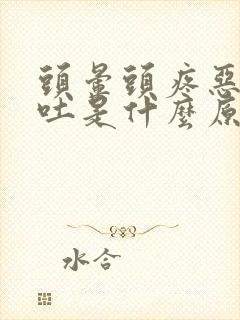 頭暈頭疼惡
吐是什麼原
水合